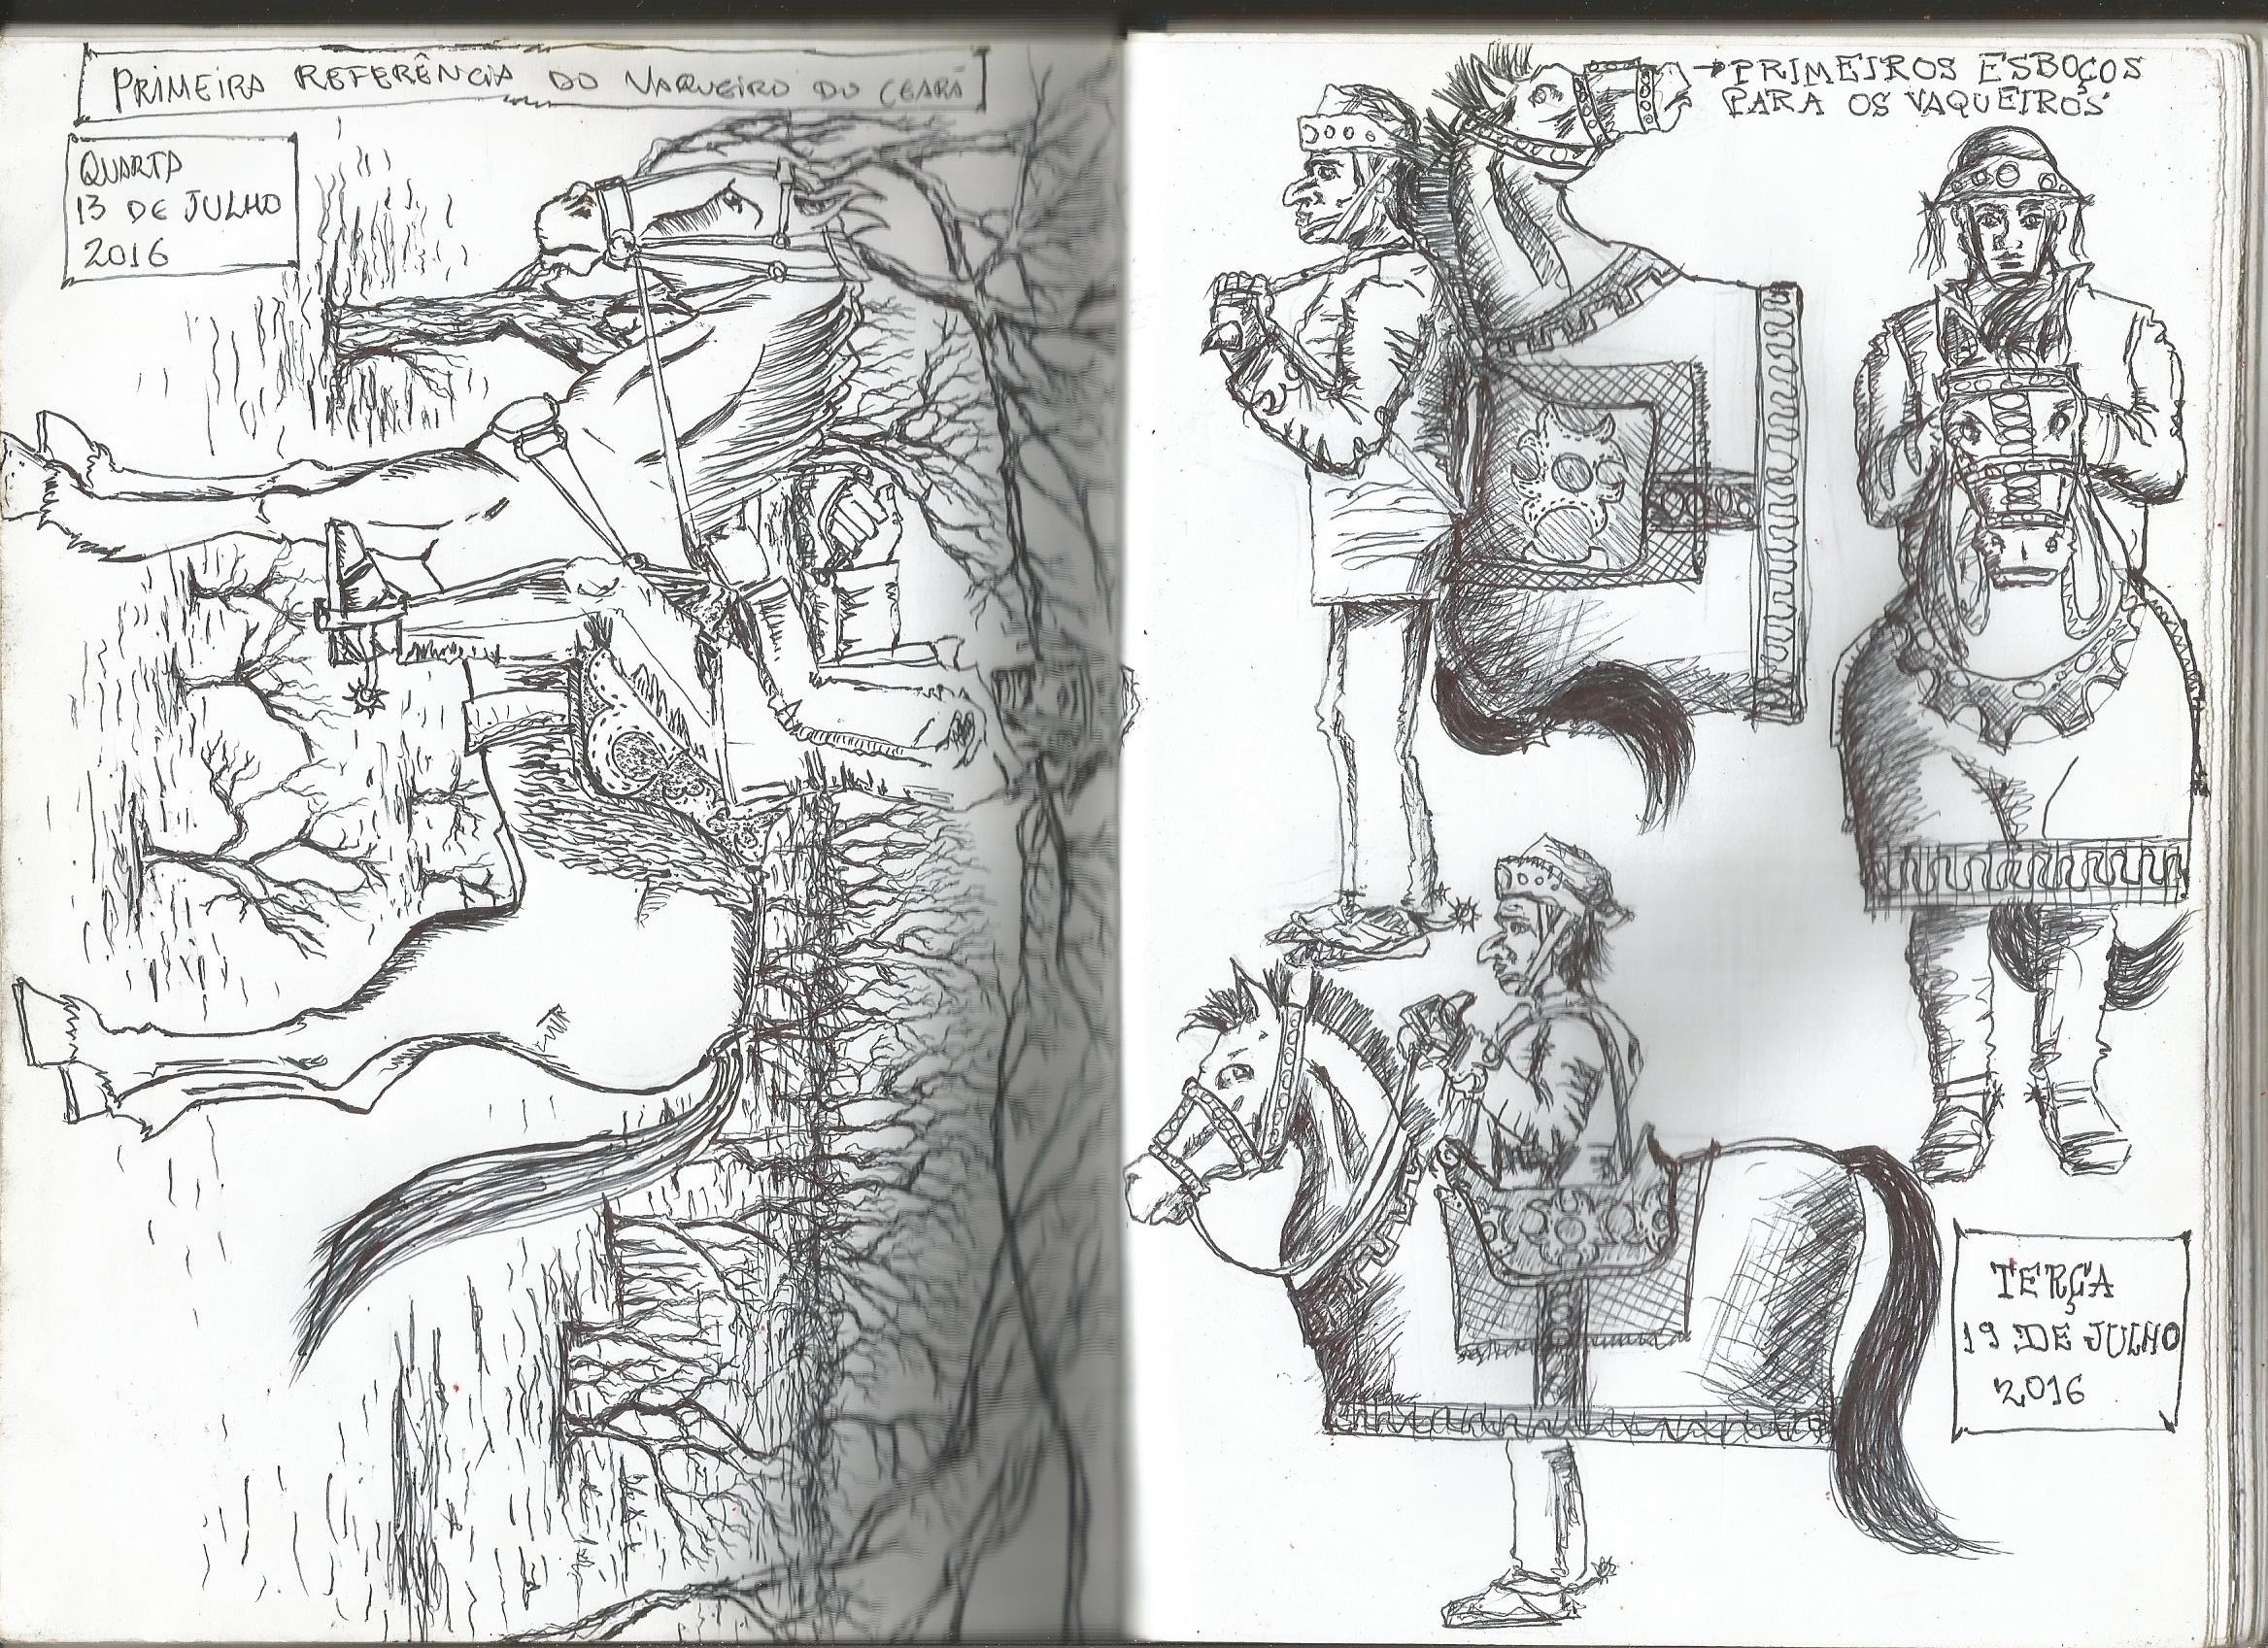 PRIMEIRA REFERÊNCIA DO VAQUEIRO DO CEARÁ
QUARTA
13 DE JULHO
2016
→ PRIMEIROS ESBOÇOS
PARA OS VAQUEIROS
TERÇA
19 DE JULHO
2016